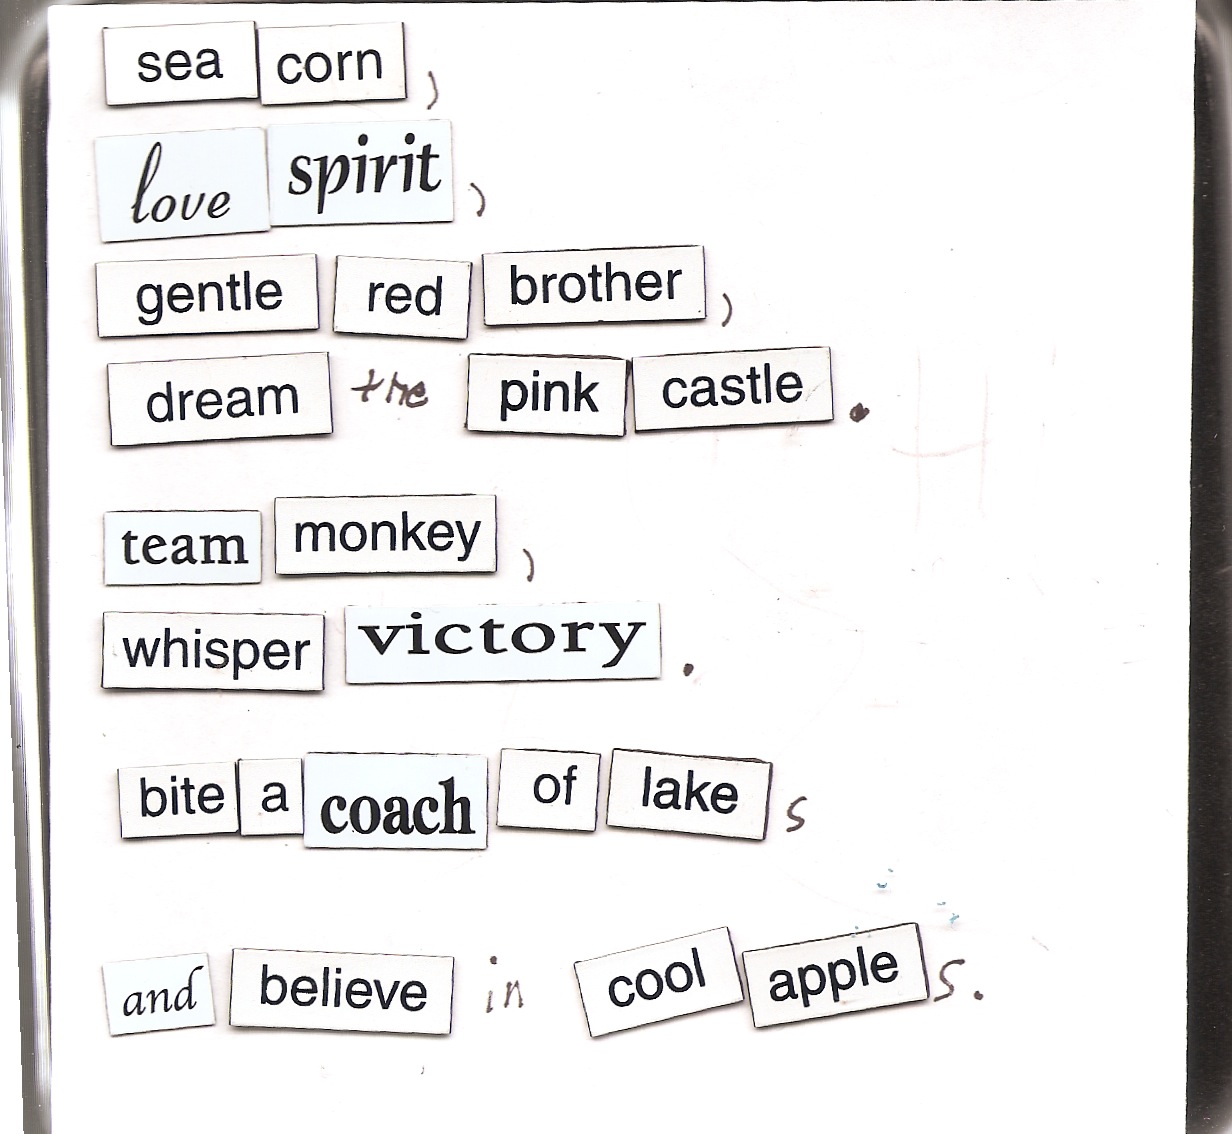 sea corn,
love spirit,
gentle red brother,
dream the pink castle.
team monkey,
whisper victory.
bite a coach of lakes
and believe in cool apples.